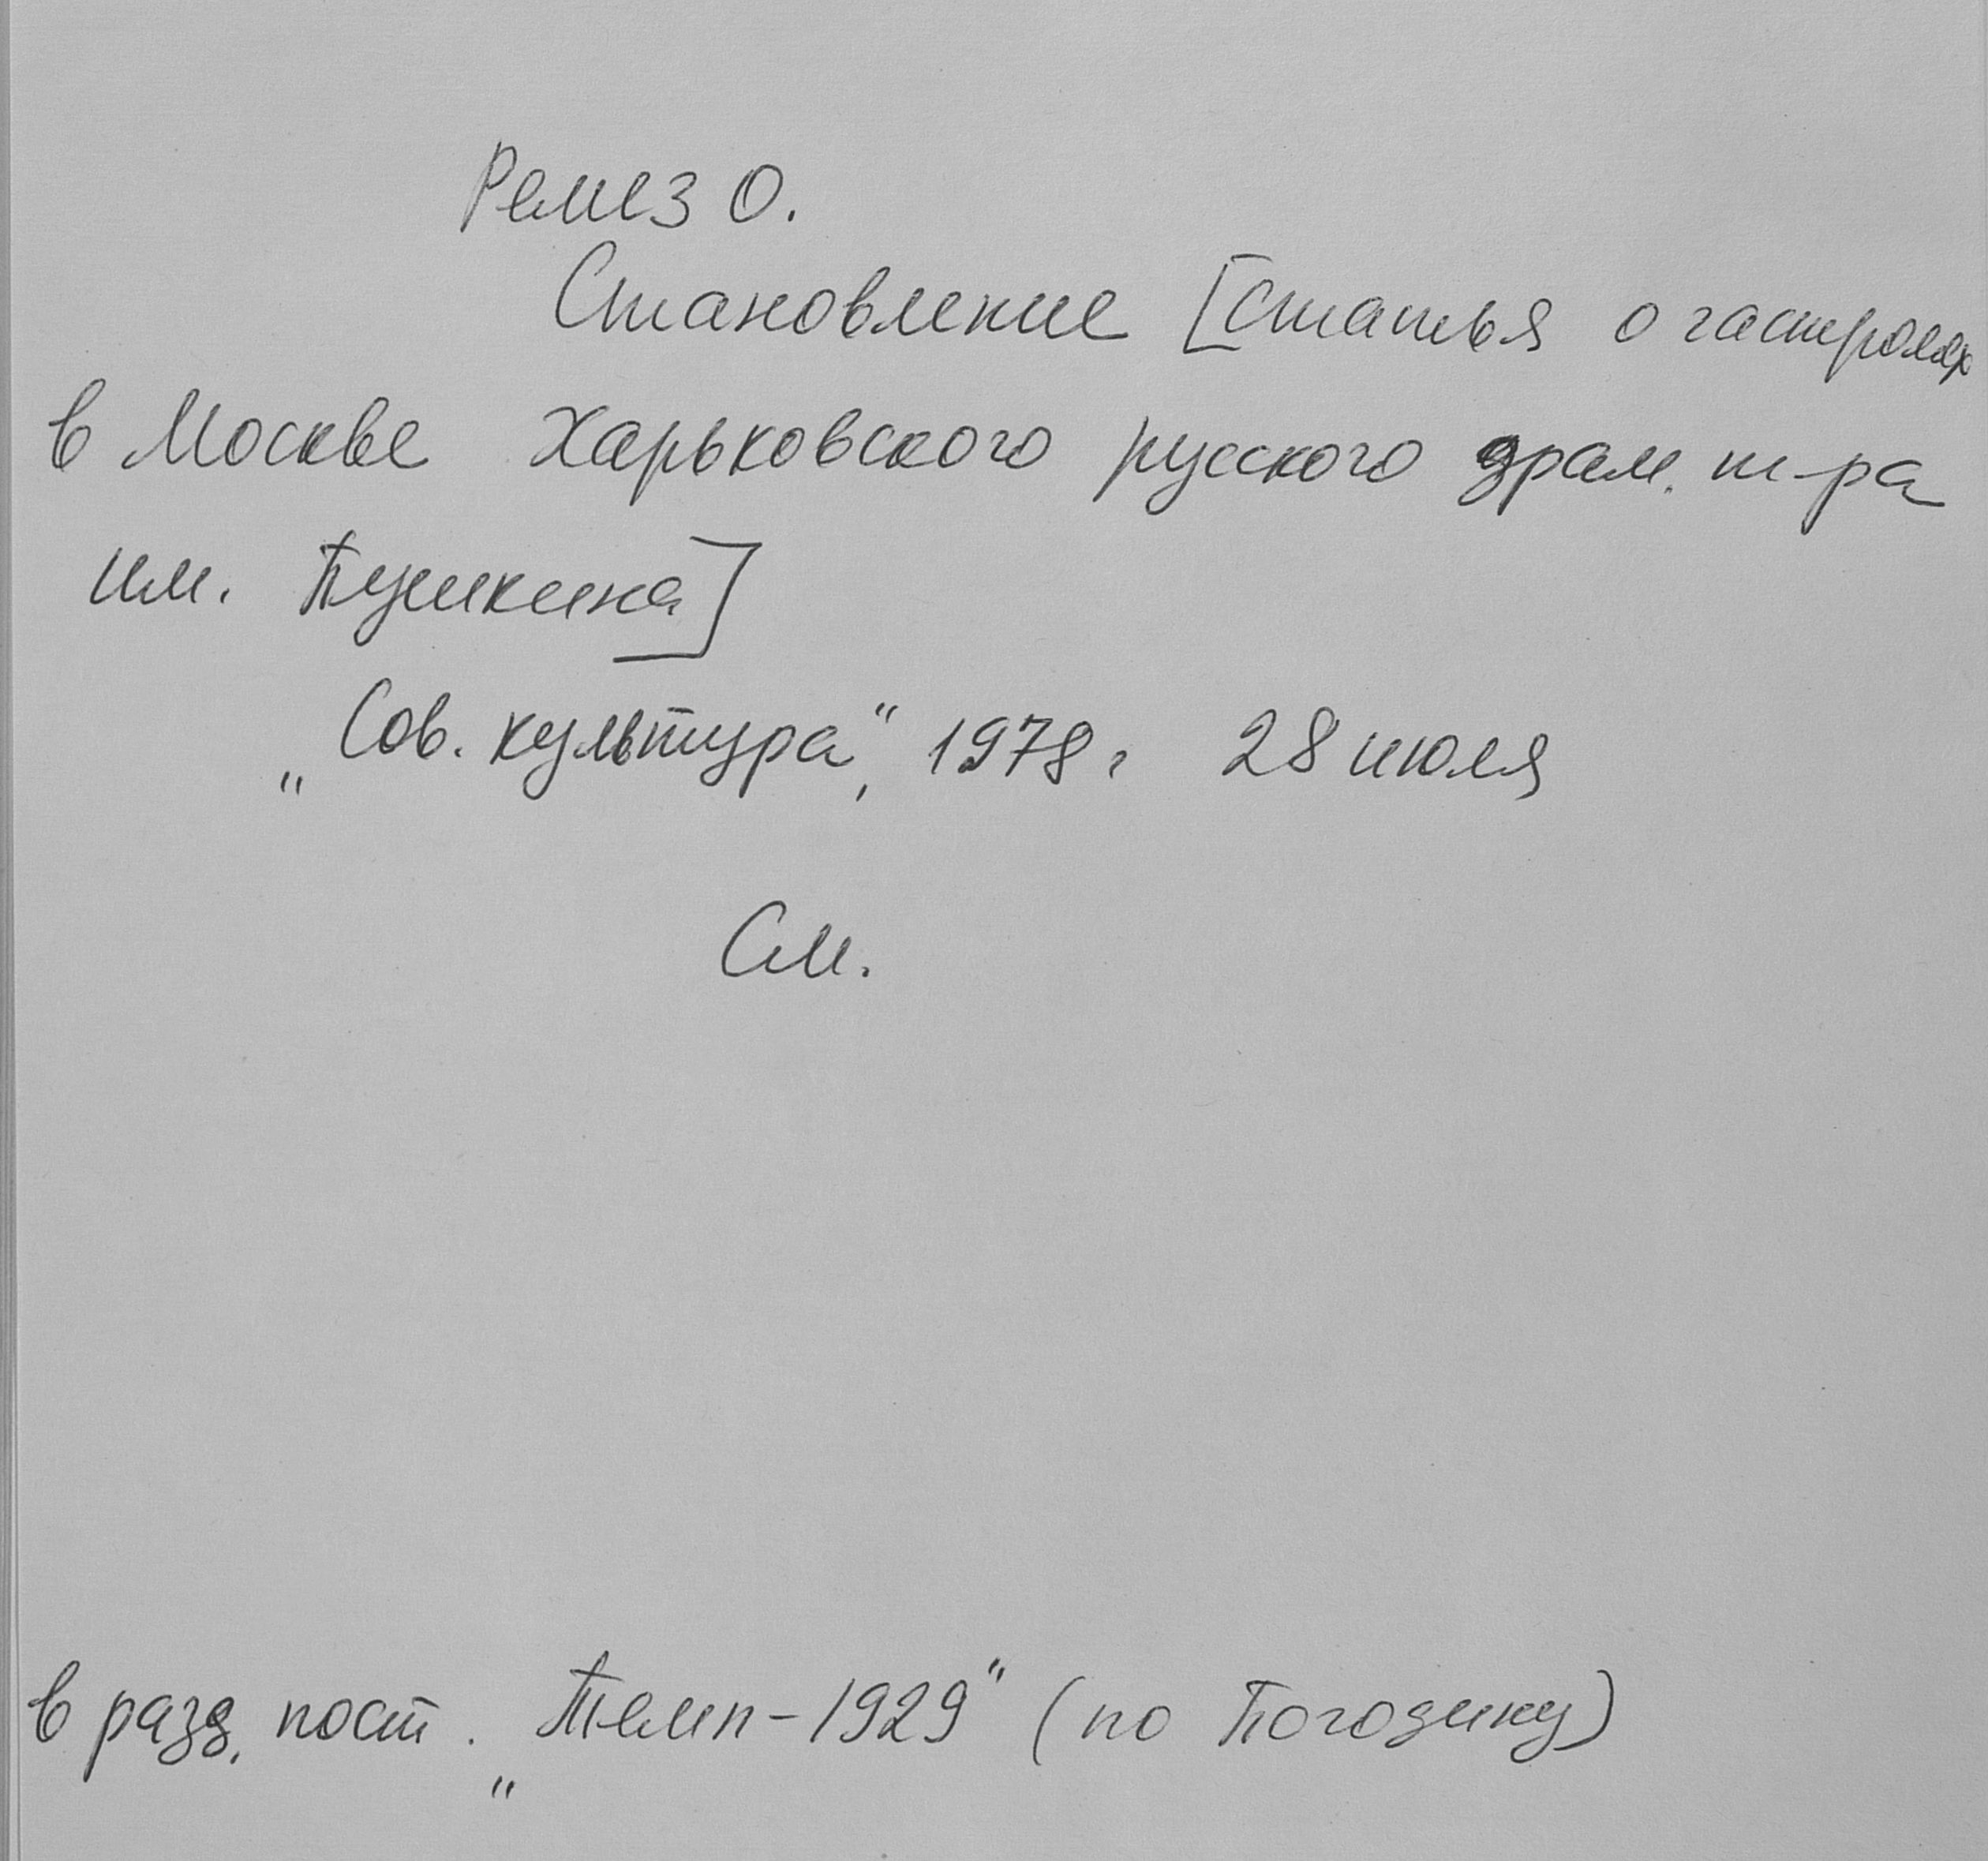 Ремез О.
Становление [статья о гастролях
в Москве Харьковского русского драм. т-ра
им. Пушкина]
„Сов. культура“, 1978 г 28 июля
См.
в разд. пост. „Темп-1929“ (по Погодину)